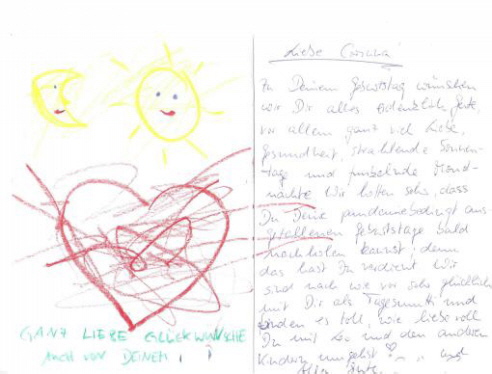 GANZ LIEBE GLÜCKWÜNSCHE
AUCH VON DEINEM
Liebe
Zu Deinem Geburtstag wünschen
wir Dir alles erdenklich Gute,
vor allem ganz viel Liebe,
Gesundheit, strahlende Sonnen-
tage und funkelnde Mond-
nächte. Wir hoffen sehr, dass
Du Deine pandemiebedingt aus-
gefallenen Geburtstage bald
nachholen kannst; denn
das hast Du verdient. Wir
sind nach wie vor sehr glücklich
mit Dir als Tagesmutti und
finden es toll, wie liebevoll
Du mit und den anderen
Kindern umgehst. Und
Alles Gute